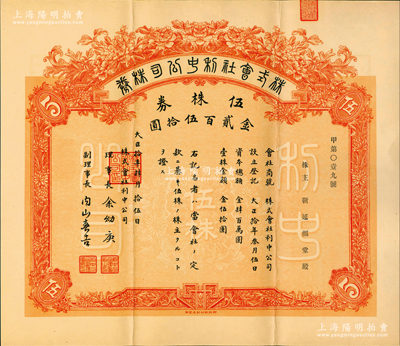 上海陽明拍賣
株式會社利中公司株券
伍株券
金貳百伍拾圓
甲第〇壹九號
株主 顏延韻堂殿
會社商號 株式會社利中公司
設立登記 大正拾年叁月伍日
資本總額 金肆百萬圓
壹株金額 金伍拾圓
右記名者ハ當會社ノ定
款ニ基キ伍株ノ株主タルコト
ヲ證ス
大正拾年肆月拾伍日
株式會社利中公司
理事長 余幼庚
副理事長 內山壽吉
伍
5
伍
5
利中
伍株